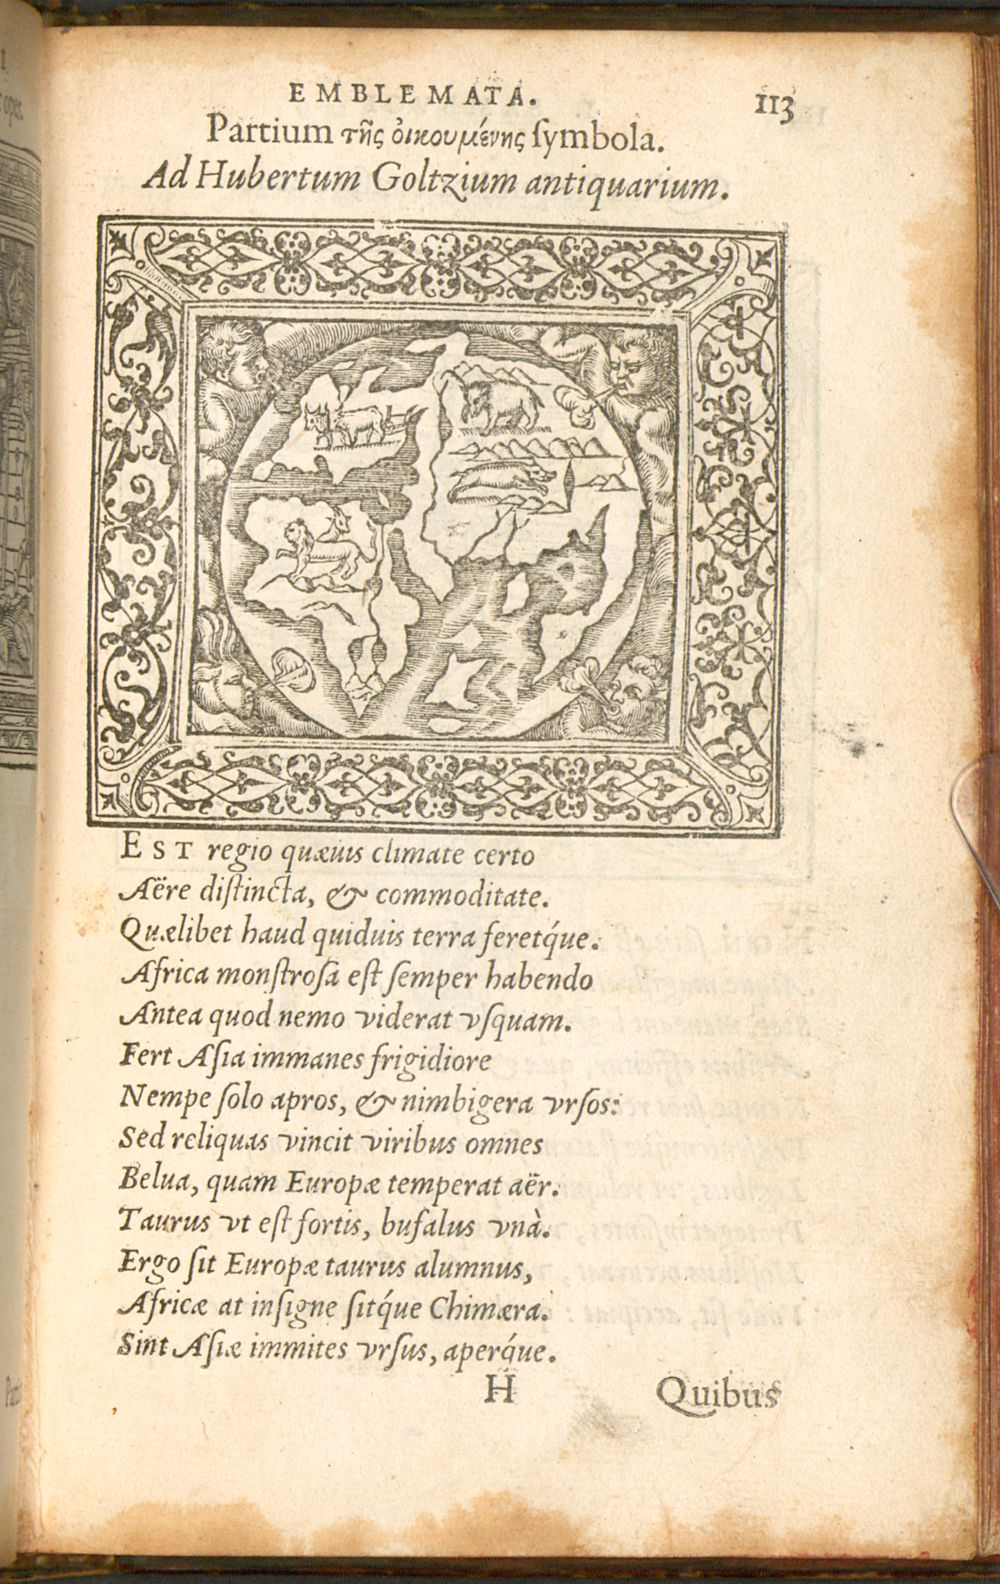 EMBLEMATA. 113
Partium τῆς ὀικουμένης ſymbola.
Ad Hubertum Goltzium antiquarium.
EST regio quæuis climate certo
Aëre diſtincta, & commoditate.
Quælibet haud quiduis terra feretq́ue.
Africa monſtroſa eſt ſemper habendo
Antea quod nemo viderat vſquam.
Fert Aſia immanes frigidiore
Nempe ſolo apros, & nimbigera vrſos:
Sed reliquas vincit viribus omnes
Belua, quam Europæ temperat aër.
Taurus vt eſt fortis, bufalus vnà.
Ergo ſit Europæ taurus alumnus,
Africæ at inſigne ſitq́ue Chimæra.
Sint Aſiæ immites vrſus, aperq́ue.
H Quibus